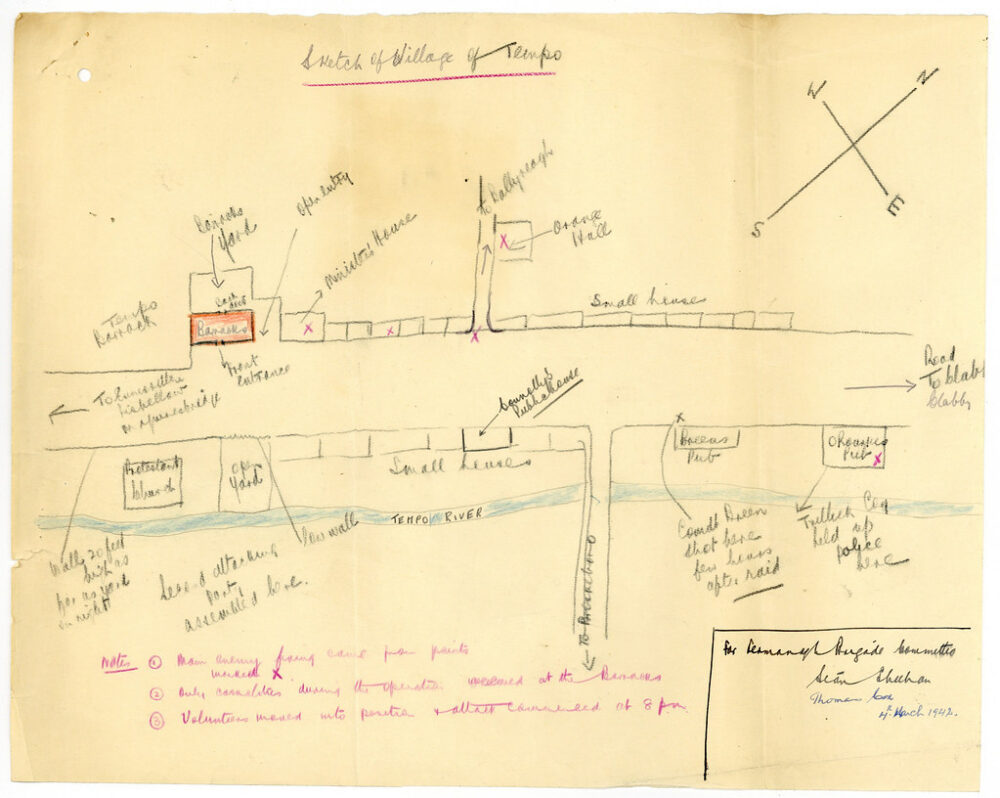 Sketch of Village of Tempo
W
N
S
E
Barracks
Yard
Open entry
Minister's House
To Ballyreagh
Orange
Hall
Small houses
Tempo
Barrack
Back
Barracks
Front
Entrance
To
Lisbellaw
or
Connolly's
Public house
Road
To Clabby
Clabby
Protestant
Church
Open
Yard
Small houses
Breens
Pub
Pub
TEMPO RIVER
Wall 20 feet
high as
far as yard
on right
Second attacking
party
assembled here.
low wall
To Brookeboro
Comdt Breen
shot here
few hours
after raid
Trillick Coy
held up
police
here
Notes
① Main enemy firing came from points
marked X
② Only casualties during the operation occurred at the Barracks
③ Volunteers moved into position & attack commenced at 8 pm
For Fermanagh Brigade Committee
Seán Sheehan
Thomas Cox
4th March 1942.